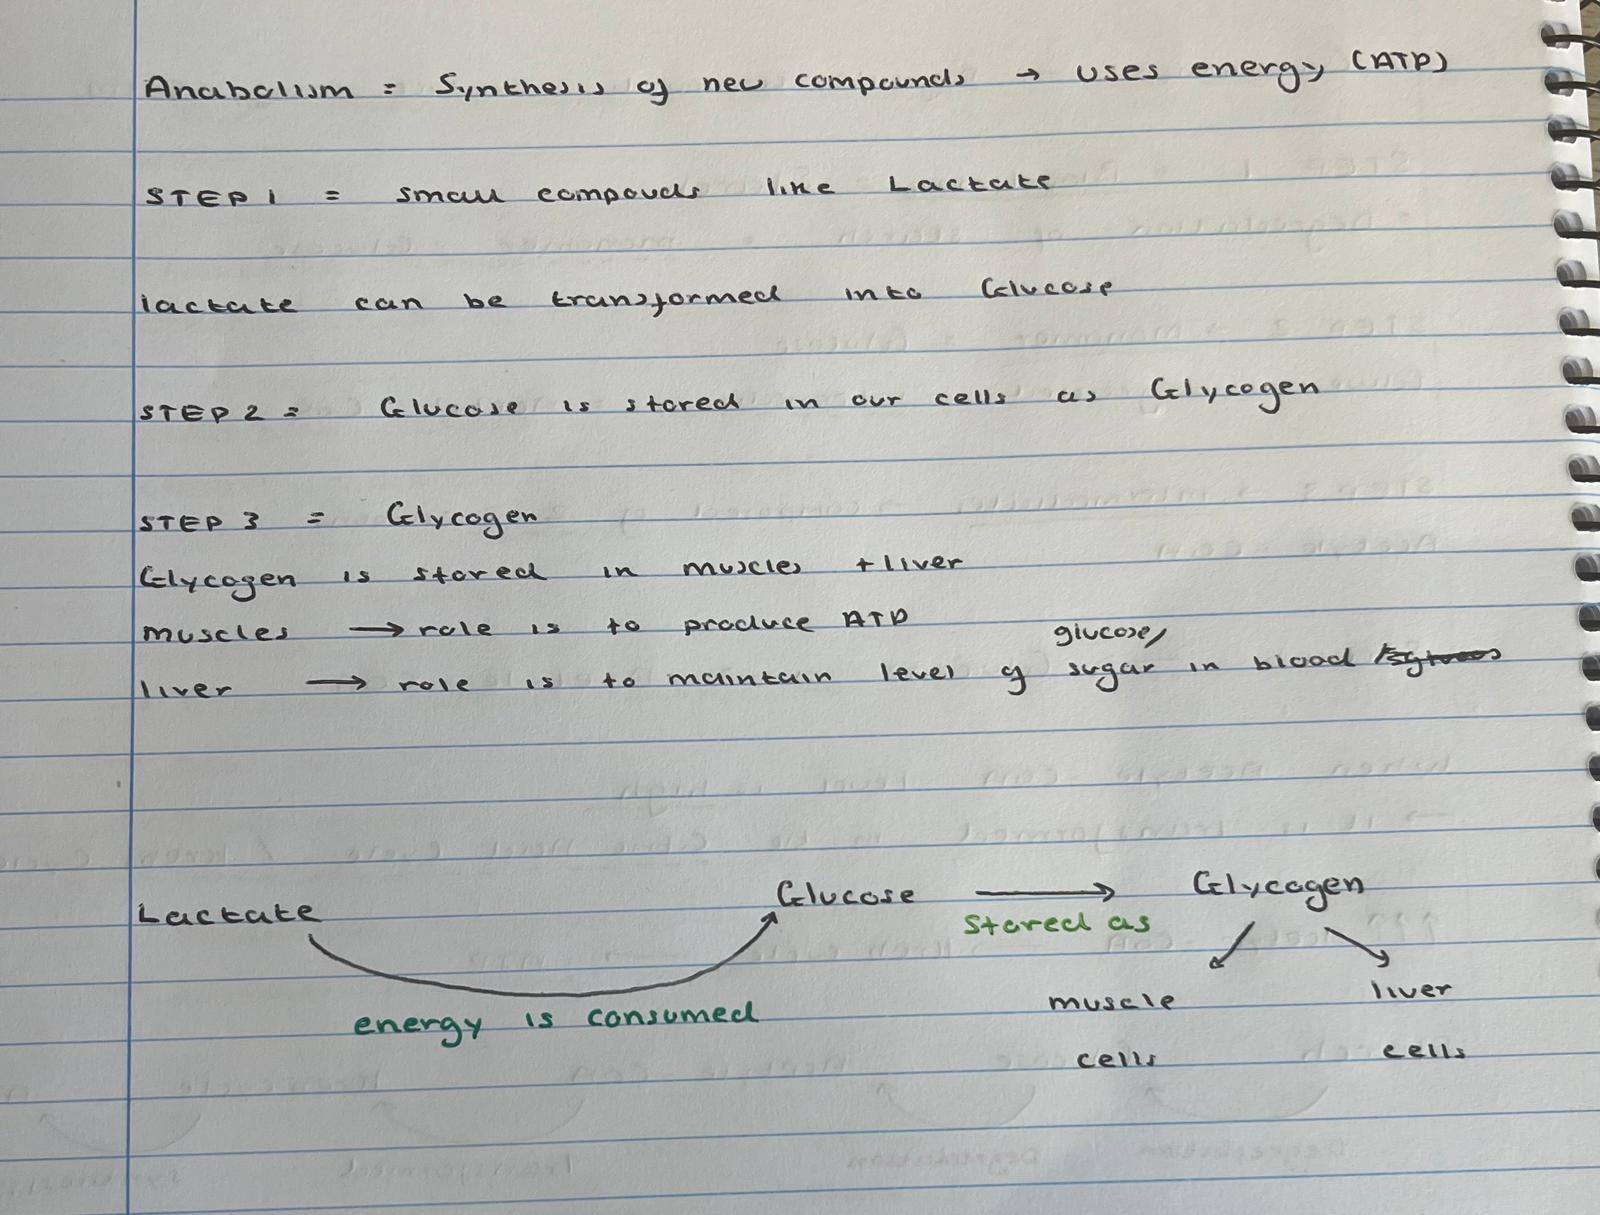 Anabolism = Synthesis of new compounds → uses energy (ATP)
STEP 1 = small compouds like Lactate
lactate can be transformed into Glucose
STEP 2 = Glucose is stored in our cells as Glycogen
STEP 3 = Glycogen
Glycogen is stored in muscles + liver
muscles → role is to produce ATP
glucose/
liver → role is to maintain level of sugar in blood
Lactate Glucose → Glycogen
stored as
energy is consumed
muscle liver
cells cells